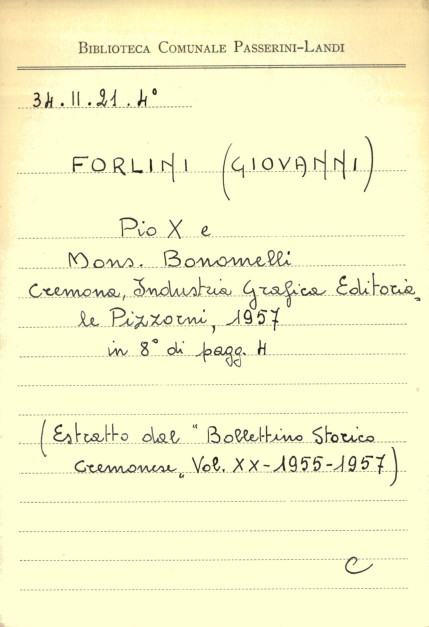 BIBLIOTECA COMUNALE PASSERINI-LANDI
34.II.21.4°
FORLINI (GIOVANNI)
Pio X e
Mons. Bonomelli
Cremona, Industria Grafica Editoria-
le Pizzorni, 1957
in 8° di pagg. 4
(Estratto dal "Bollettino Storico
Cremonese„ Vol. XX-1955-1957)
C